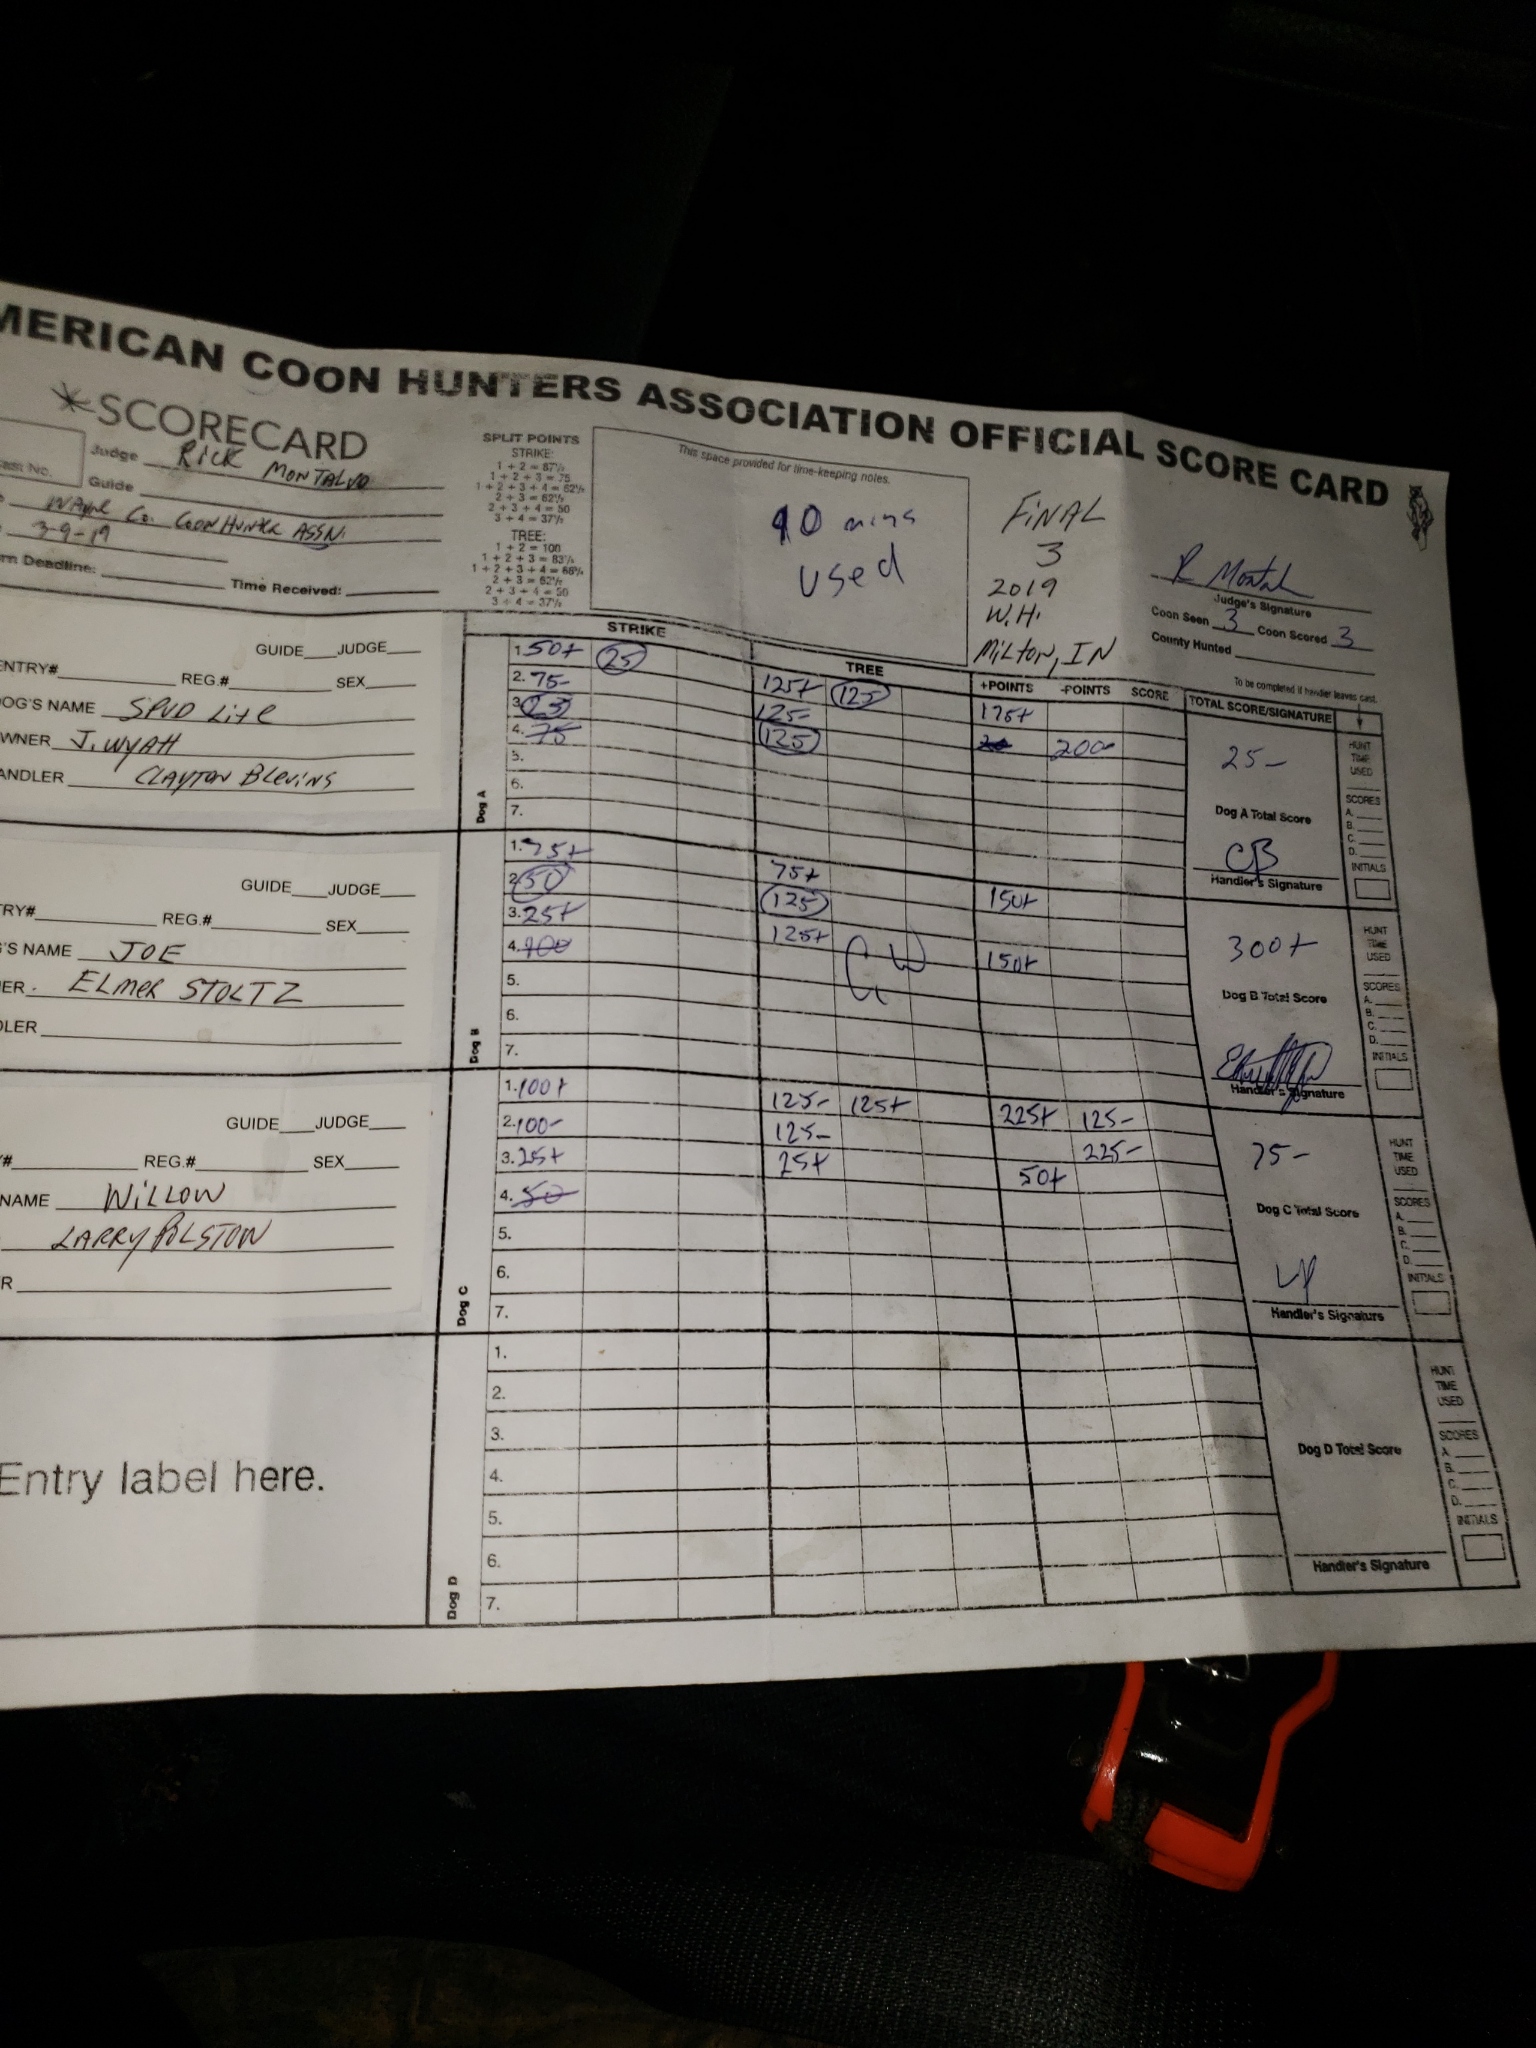 MERICAN COON HUNTERS ASSOCIATION OFFICIAL SCORE CARD
*SCORECARD
Judge RICK MONTALVO
Guide
WAYNE Co. COON HUNTER ASSN.
3-9-19
Deadline: Time Received:
SPLIT POINTS
STRIKE:
1 + 2 = 87½
1 + 2 + 3 = 75
1 + 2 + 3 + 4 = 62½
2 + 3 = 62½
2 + 3 + 4 = 50
3 + 4 = 37½
TREE:
1 + 2 = 100
1 + 2 + 3 = 83⅓
1 + 2 + 3 + 4 = 68¾
2 + 3 = 62½
2 + 3 + 4 = 50
3 + 4 = 37½
This space provided for time-keeping notes.
90 mins
used
FINAL
3
2019
W.H.
MILTON, IN
R Montal
Judge's Signature
Coon Seen 3 Coon Scored 3
County Hunted
To be completed if handler leaves cast.
STRIKE TREE +POINTS -POINTS SCORE TOTAL SCORE/SIGNATURE
GUIDE JUDGE
ENTRY# REG.# SEX
DOG'S NAME SPUD Lite
WNER J. WYATT
ANDLER CLAYTON Blevins
Dog A
1. 50+ 25 125+ 125 175+
2. 75- 125- 200-
3. 25 125
4. 75
5.
6.
7.
25-
Dog A Total Score
CB
Handler's Signature
HUNT
TIME
USED
SCORES
A.
B.
C.
D.
INITIALS
GUIDE JUDGE
RY# REG.# SEX
'S NAME JOE
ER. ELMER STOLTZ
LER
Dog B
1. 75+ 75+ 150+
2. 50 125
3. 25+ 125+ 150+
4. 100
5.
6.
7.
300+
Dog B Total Score
Handler's Signature
HUNT
TIME
USED
SCORES
A.
B.
C.
D.
INITIALS
GUIDE JUDGE
# REG.# SEX
NAME WILLOW
LARRY POLSTON
R
Dog C
1. 100+ 125- 125+ 225+ 125-
2. 100- 125- 225-
3. 25+ 25+ 50+
4. 50
5.
6.
7.
75-
Dog C Total Score
LP
Handler's Signature
HUNT
TIME
USED
SCORES
A.
B.
C.
D.
INITIALS
Entry label here.
Dog D
1.
2.
3.
4.
5.
6.
7.
Dog D Total Score
Handler's Signature
HUNT
TIME
USED
SCORES
A.
B.
C.
D.
INITIALS